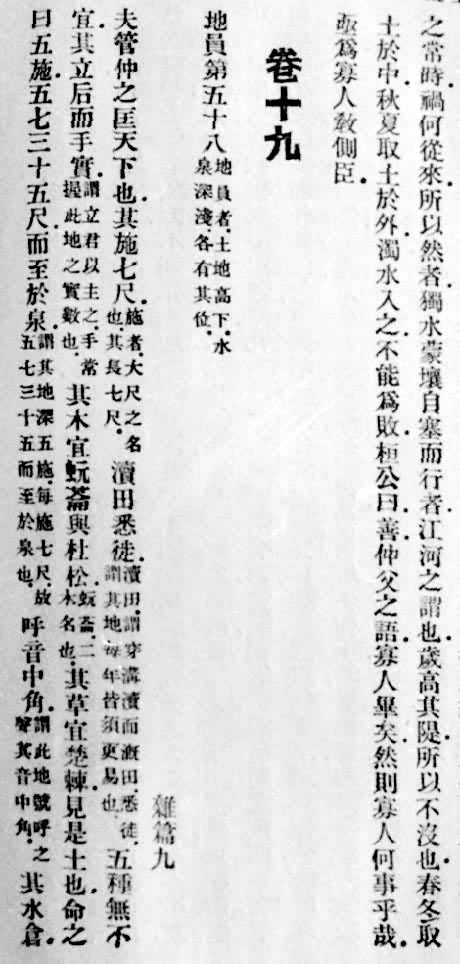 之常時．禍何從來．所以然者．獨水蒙壤．自塞而行者．江河之謂也．歲高其隄．所以不沒也．春冬取
土於中．秋夏取土於外．濁水入之．不能爲敗．桓公曰．善．仲父之語寡人畢矣．然則寡人何事乎哉．
亟爲寡人敎側臣．
卷十九
地員第五十八 地員者．土地高下．水泉深淺．各有其位．
雜篇九
夫管仲之匡天下也．其施七尺．施者．大尺之名也．其長七尺．瀆田悉徙．瀆田．謂穿溝瀆而溉田．悉徙．謂其地每年皆須更易也．五種無不
宜．其立后而手實．謂立君以主之．手常握此地之實數也．其木宜蚖菕與杜松．蚖菕．二木名也．其草宜楚棘．見是土也．命之
曰五施．五七三十五尺．而至於泉．謂其地深五施．每施七尺．故五七三十五而至於泉也．呼音中角．謂此地號呼之聲其音中角．其水倉